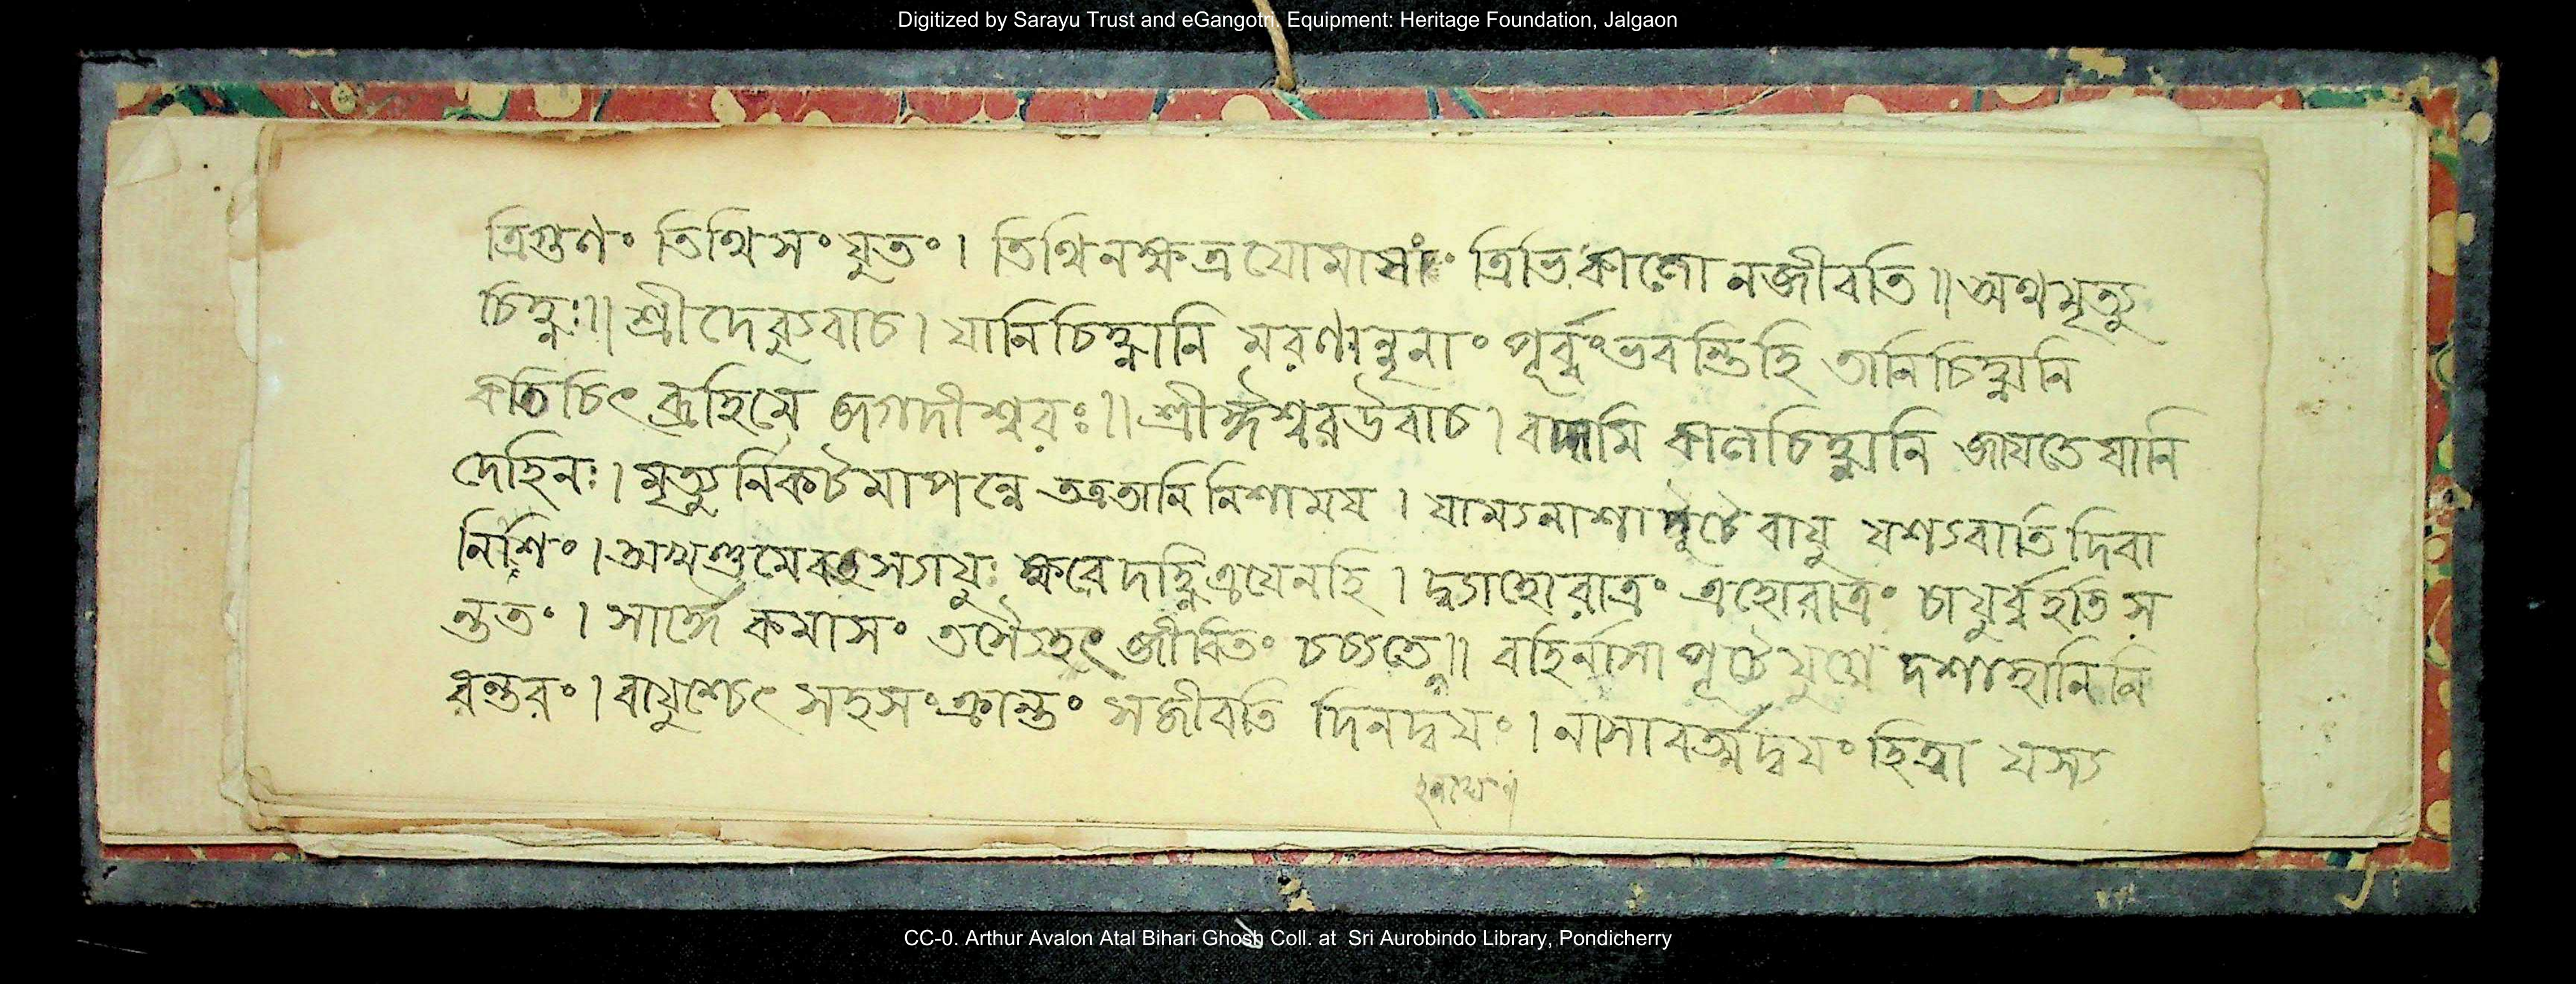 Digitized by Sarayu Trust and eGangotri. Equipment: Heritage Foundation, Jalgaon
ত্রিগুণং তিথিসংযুতং। তিথিনক্ষত্রযোমাসাং ত্রিভিকালো নজীবতি॥ অথমৃত্যু
চিহ্নঃ॥ শ্রীদেব্যুবাচ। যানিচিহ্নানি মরণান্নৃনাং পূর্ব্বংভবন্তিহি তানিচিহ্নানি
কতিচিৎ ব্রূহিমে জগদীশ্বরঃ॥ শ্রীঈশ্বরউবাচ। বদামি কালচিহ্নানি জাযতে যানি
দেহিনঃ। মৃত্যুর্নিকটমাপন্নে অত্রতানি নিশাময। যাম্যনাশাপূটে বাযু যশ্যবাতি দিবা
নিশিং। দ্ব্যাহোরাত্রং এহোরাত্রং চাযুর্ব্বহতি স
ন্ততং। সার্দ্ধে কমাসং জীবিতং বহির্নাসা পূটেযুগ্মে দশাহানি নি
রন্তরং। বাযুশ্চেৎ সহসংক্রান্তং সজীবতি দিনদ্বযং। নাসাবর্ত্মদ্বযং হিত্বা যস্য
CC-0. Arthur Avalon Atal Bihari Ghosh Coll. at Sri Aurobindo Library, Pondicherry